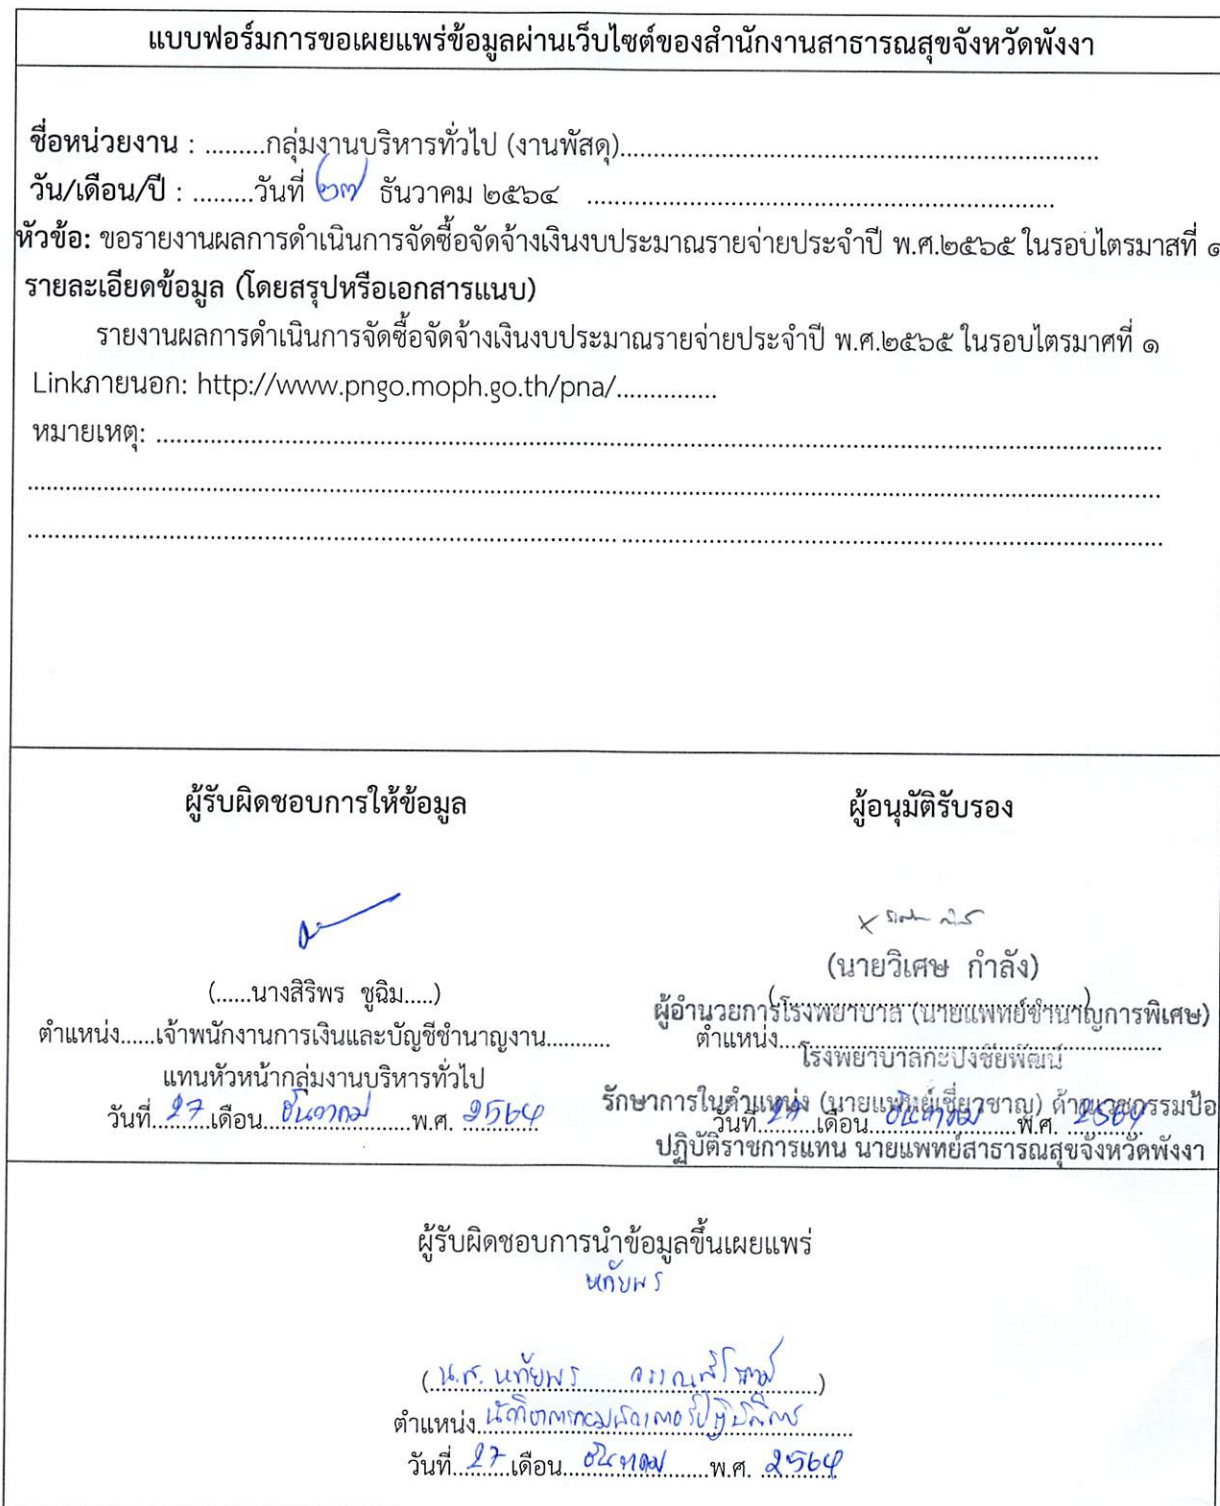 แบบฟอร์มการขอเผยแพร่ข้อมูลผ่านเว็บไซต์ของสำนักงานสาธารณสุขจังหวัดพังงา
ชื่อหน่วยงาน : .........กลุ่มงานบริหารทั่วไป (งานพัสดุ)......................................................................
วัน/เดือน/ปี : .........วันที่ ๒๗ ธันวาคม ๒๕๖๔ ......................................................................
หัวข้อ: ขอรายงานผลการดำเนินการจัดซื้อจัดจ้างเงินงบประมาณรายจ่ายประจำปี พ.ศ.๒๕๖๕ ในรอบไตรมาสที่ ๑
รายละเอียดข้อมูล (โดยสรุปหรือเอกสารแนบ)
รายงานผลการดำเนินการจัดซื้อจัดจ้างเงินงบประมาณรายจ่ายประจำปี พ.ศ.๒๕๖๕ ในรอบไตรมาศที่ ๑
Linkภายนอก: http://www.pngo.moph.go.th/pna/...............
หมายเหตุ: ......................................................................
ผู้รับผิดชอบการให้ข้อมูล
(......นางสิริพร ชูฉิม.....)
ตำแหน่ง......เจ้าพนักงานการเงินและบัญชีชำนาญงาน...........
แทนหัวหน้ากลุ่มงานบริหารทั่วไป
วันที่ 27 เดือน ธันวาคม พ.ศ. 2564
ผู้อนุมัติรับรอง
(นายวิเศษ กำลัง)
ผู้อำนวยการโรงพยาบาล (นายแพทย์ชำนาญการพิเศษ)
ตำแหน่ง
โรงพยาบาลกะปงชัยพัฒน์
รักษาการในตำแหน่ง (นายแพทย์เชี่ยวชาญ) ด้านเวชกรรมป้อ
วันที่ 27 เดือน ธันวาคม พ.ศ. 2564
ปฏิบัติราชการแทน นายแพทย์สาธารณสุขจังหวัดพังงา
ผู้รับผิดชอบการนำข้อมูลขึ้นเผยแพร่
หทัยพร
(น.ส. หทัยพร)
ตำแหน่ง นักวิชาการคอมพิวเตอร์ปฏิบัติการ
วันที่ 27 เดือน ธันวาคม พ.ศ. 2564